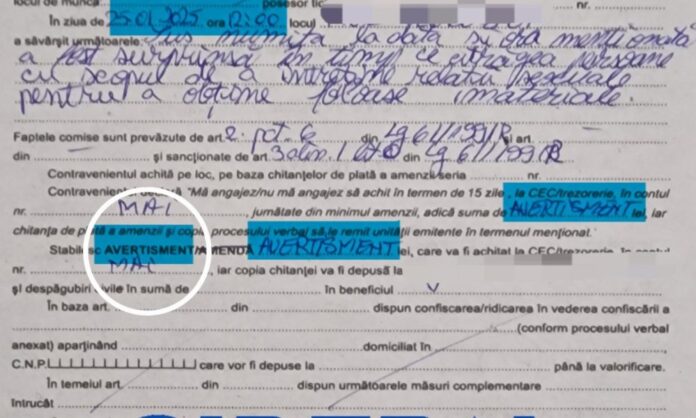 locul de muncă posesor tic nr.
În ziua de 25.01.2025, ora 12:00 locul
a săvârșit următoarele: Sus numita la data și ora menționată
a fost surprinsă în timp ce atragea persoane
cu scopul de a întreține relații sexuale
pentru a obține foloase imateriale.
Faptele comise sunt prevăzute de art. 2. pct. 6 din Lg 61/1991/R și art
din și sancționate de art. 3 alin. 1 din Lg 61/1991 R
Contravenientul achită pe loc, pe baza chitanțelor de plată a amenzii seria nr.
Contravenientul declară "Mă angajez/nu mă angajez să achit în termen de 15 zile, la CEC/trezorerie, în contul
nr. MAI jumătate din minimul amenzii, adică suma de AVERTISMENT lei, iar
chitanța de plată a amenzii și copia procesului verbal să le remit unității emitente în termenul menționat.
Stabilesc AVERTISMENT/AMENDĂ AVERTISMENT lei, care va fi achitat la CEC/trezorerie, în contul
nr. MAI, iar copia chitanței va fi depusă la
și despăgubiri civile în sumă de în beneficiul v
În baza art. din dispun confiscarea/ridicarea în vederea confiscării a
(conform procesului verbal
anexat) aparținând domiciliat în
C.N.P. care vor fi depuse la până la valorificare.
În temeiul art. din dispun următoarele măsuri complementare
întrucât